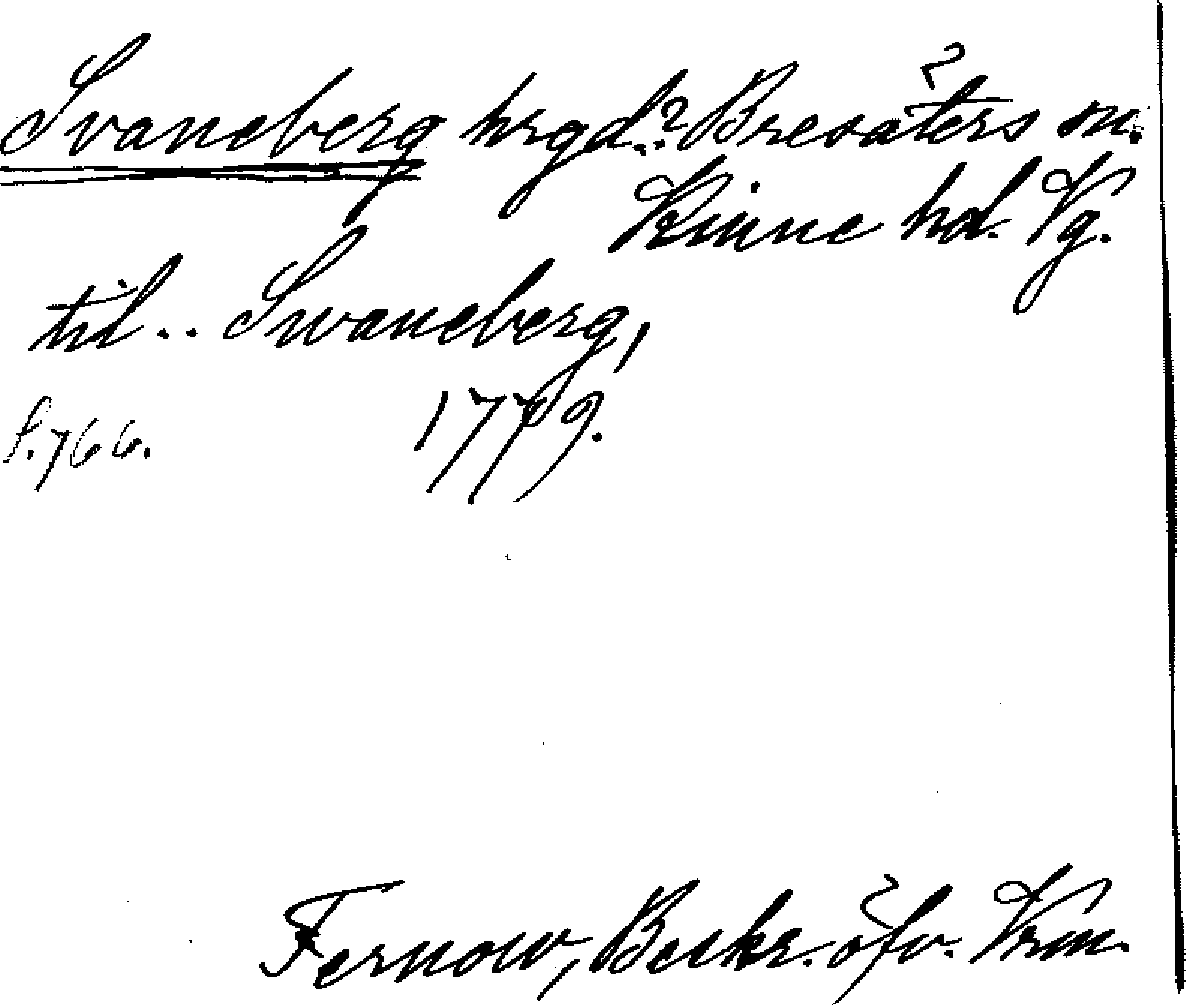 Svaneberg hrgd.? Bresäters sn.
Kinne hd. Vg.
til.. Swaneberg,
s. 766. 1779.
Fernow, Beskr. öfv. Vrm.